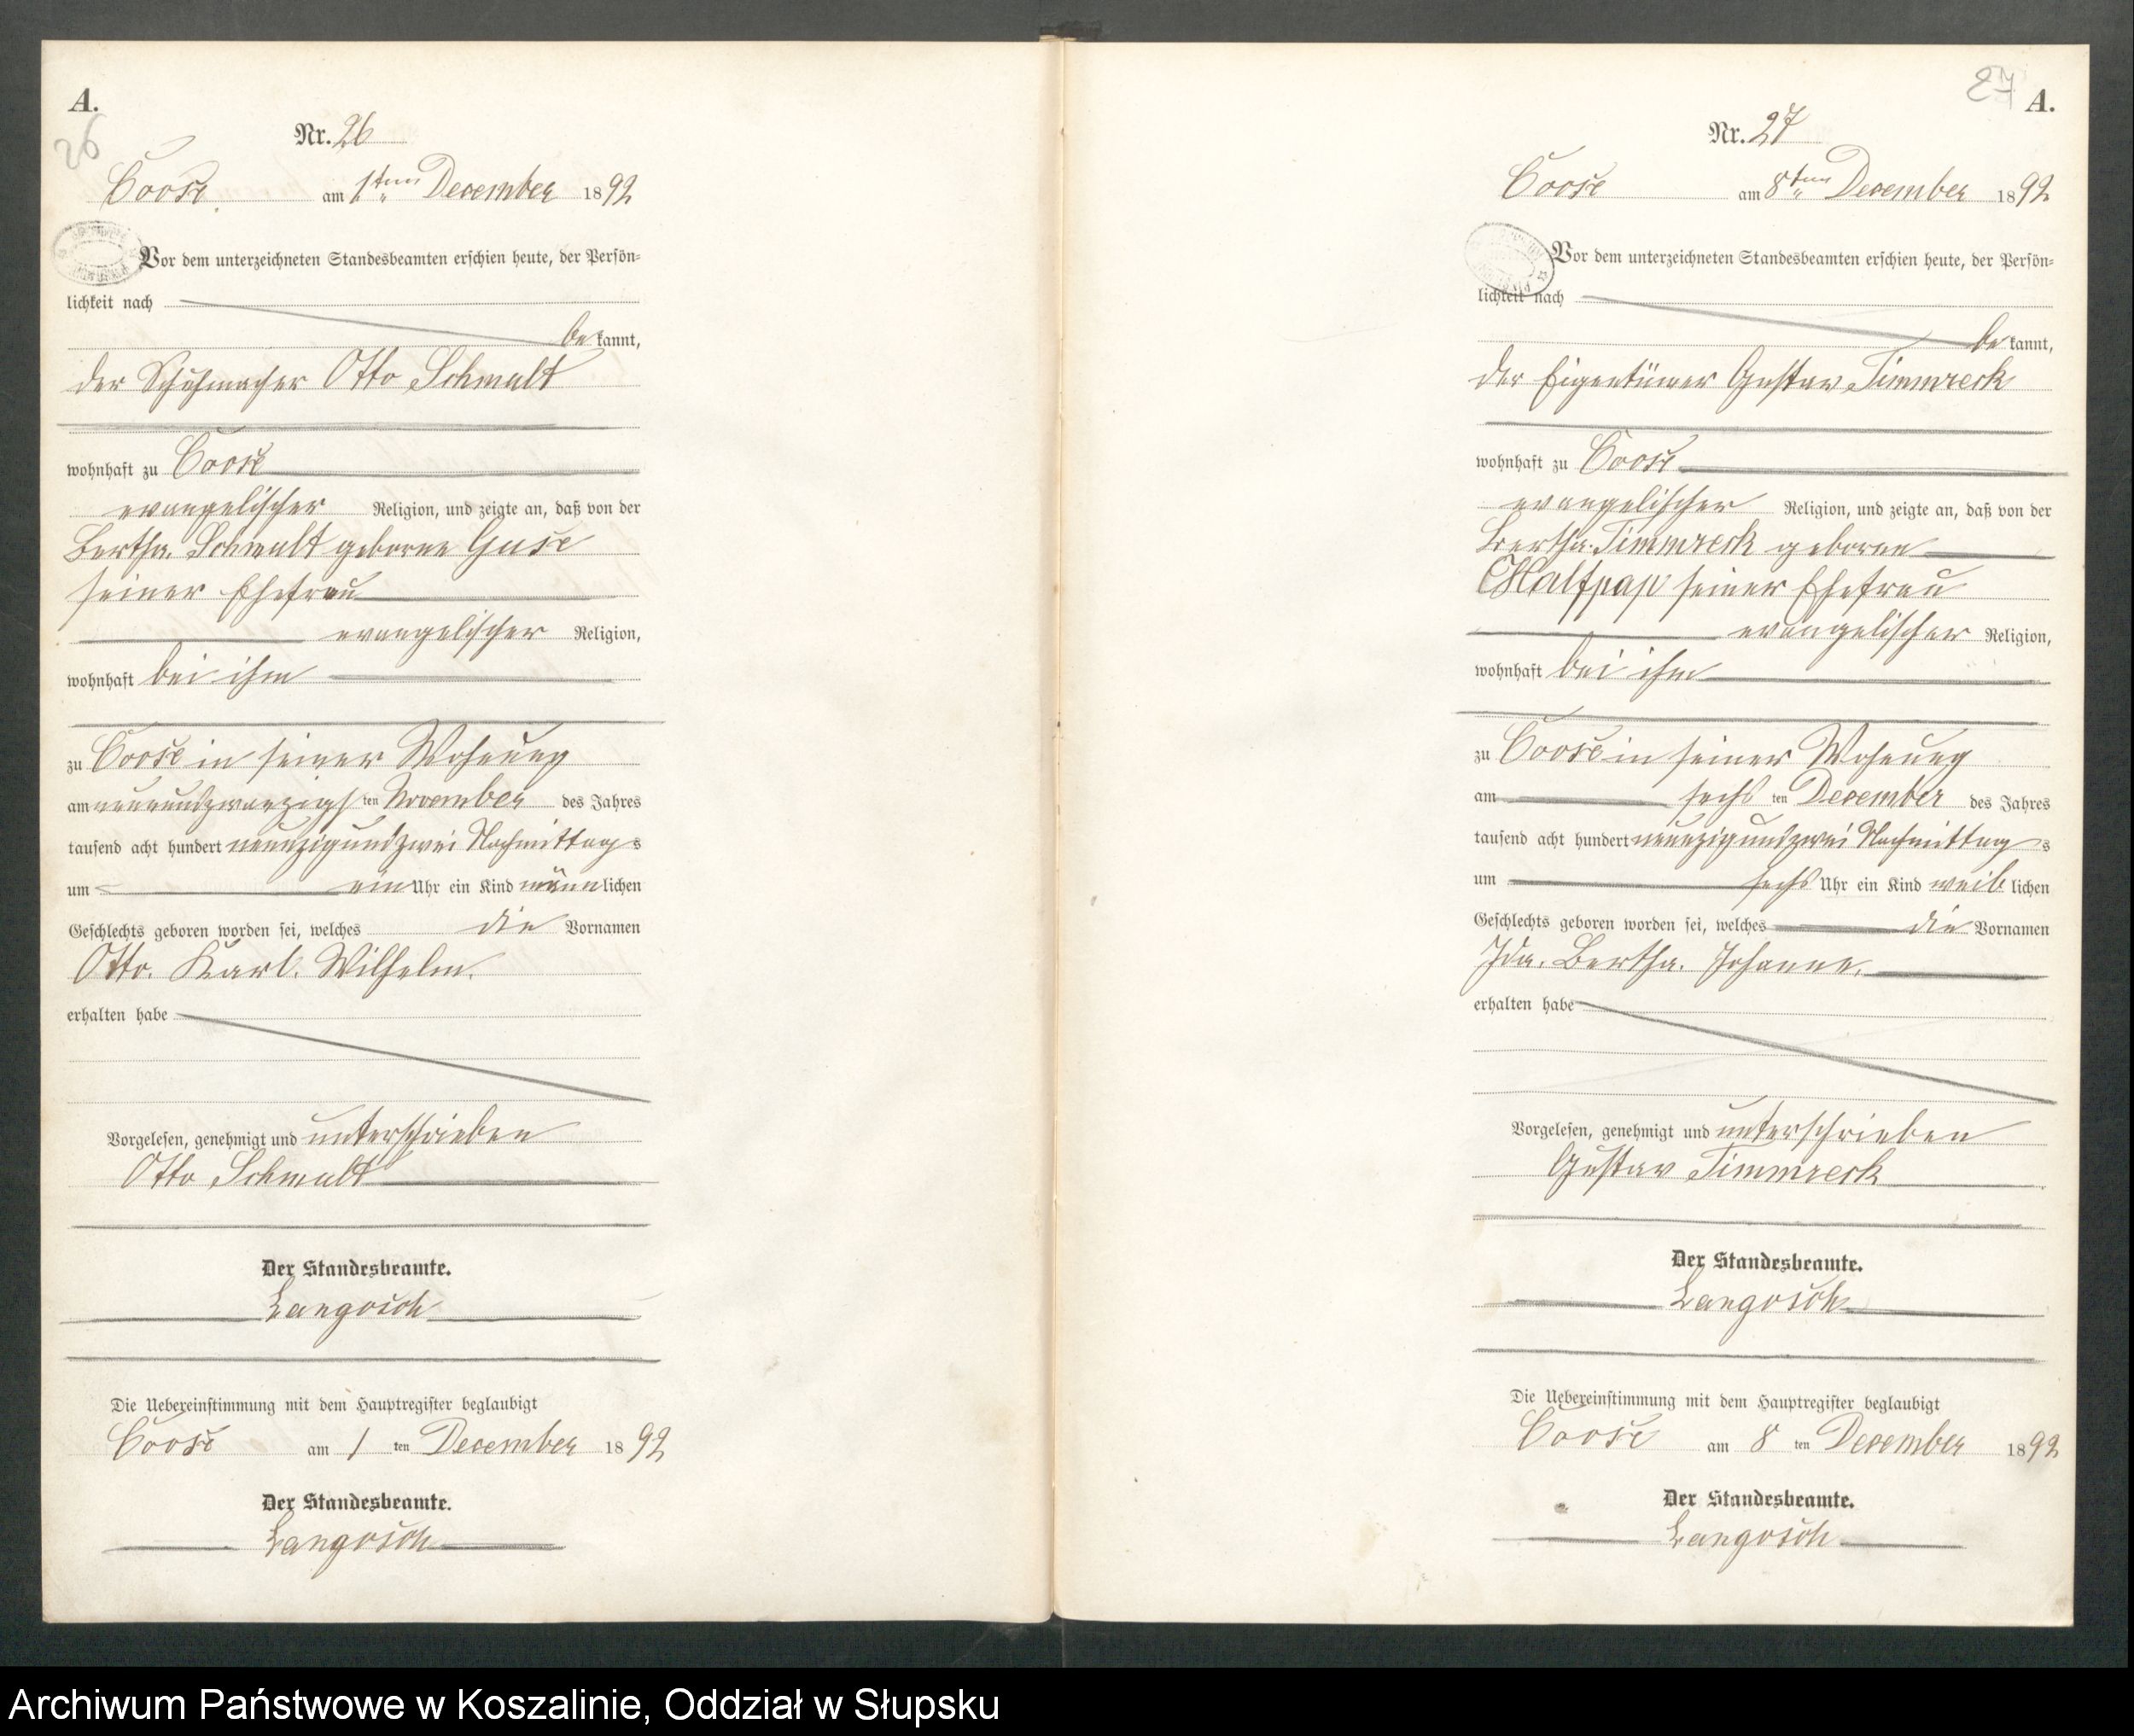 A.
26
Nr. 26
Coose. am 1ten December 1892
Vor dem unterzeichneten Standesbeamten erschien heute, der Persön-
lichkeit nach
bekannt,
der Schuhmacher Otto Schmalt
wohnhaft zu Coose
evangelischer Religion, und zeigte an, daß von der
Bertha Schmalt geborne Guse
seiner Ehefrau
evangelischer Religion,
wohnhaft bei ihm
zu Coose in seiner Wohnung
am neunundzwanzigsten November des Jahres
tausend acht hundert neunzigundzwei Nachmittags
um ein Uhr ein Kind männlichen
Geschlechts geboren worden sei, welches die Vornamen
Otto. Karl. Wilhelm.
erhalten habe
Vorgelesen, genehmigt und unterschrieben
Otto Schmalt
Der Standesbeamte.
Langosch
Die Uebereinstimmung mit dem Hauptregister beglaubigt
Coose am 1 ten December 1892
Der Standesbeamte.
Langosch
27 A.
Nr. 27
Coose am 8ten December 1892
Vor dem unterzeichneten Standesbeamten erschien heute, der Persön-
lichkeit nach
bekannt,
der Eigentümer Gustav Timmreck
wohnhaft zu Coose
evangelischer Religion, und zeigte an, daß von der
Bertha Timmreck geborne
Halfpap seiner Ehefrau
evangelischer Religion,
wohnhaft bei ihm
zu Coose in seiner Wohnung
am sechsten December des Jahres
tausend acht hundert neunzigundzwei Nachmittags
um sechs Uhr ein Kind weiblichen
Geschlechts geboren worden sei, welches die Vornamen
Ida. Bertha. Johanne.
erhalten habe
Vorgelesen, genehmigt und unterschrieben
Gustav Timmreck
Der Standesbeamte.
Langosch
Die Uebereinstimmung mit dem Hauptregister beglaubigt
Coose am 8 ten December 1892
Der Standesbeamte.
Langosch
Archiwum Państwowe w Koszalinie, Oddział w Słupsku